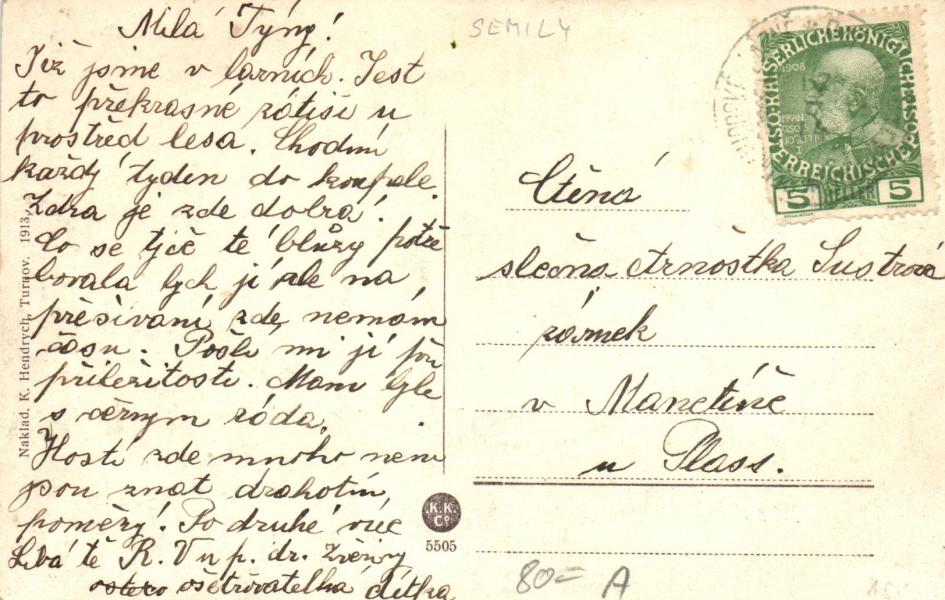 Milá Týny!
Již jsme v lázních. Jest
to překrasné zátiší u
prostřed lesa. Chodím
každý týden do koupele.
Zdra je zde dobrá!
Co se týče té blůzy potře
bovala bych ji ale na
přešívaní zde nemám
času. Pošli mi ji při
příležitosti. Mam býle
s černym ráda.
Hostí zde mnoho není
jsou znat drahotin
poměry! Po druhé více
Libá tě R. V u p. dr.
ošetřovatelka dítka
Naklad. K. Hendrych, Turnov. 1913.
SEMILY
KAISERLICHE KÖNIGLICHE
ÖSTERREICHISCHE POST
1908
FRANZ JOSEF I
5 HELLER 5
Ctěná
slečna Arnoštka Šustrová
zámek
v Manetíně
u Plass.
K.K.
Co.
5505
80=
A